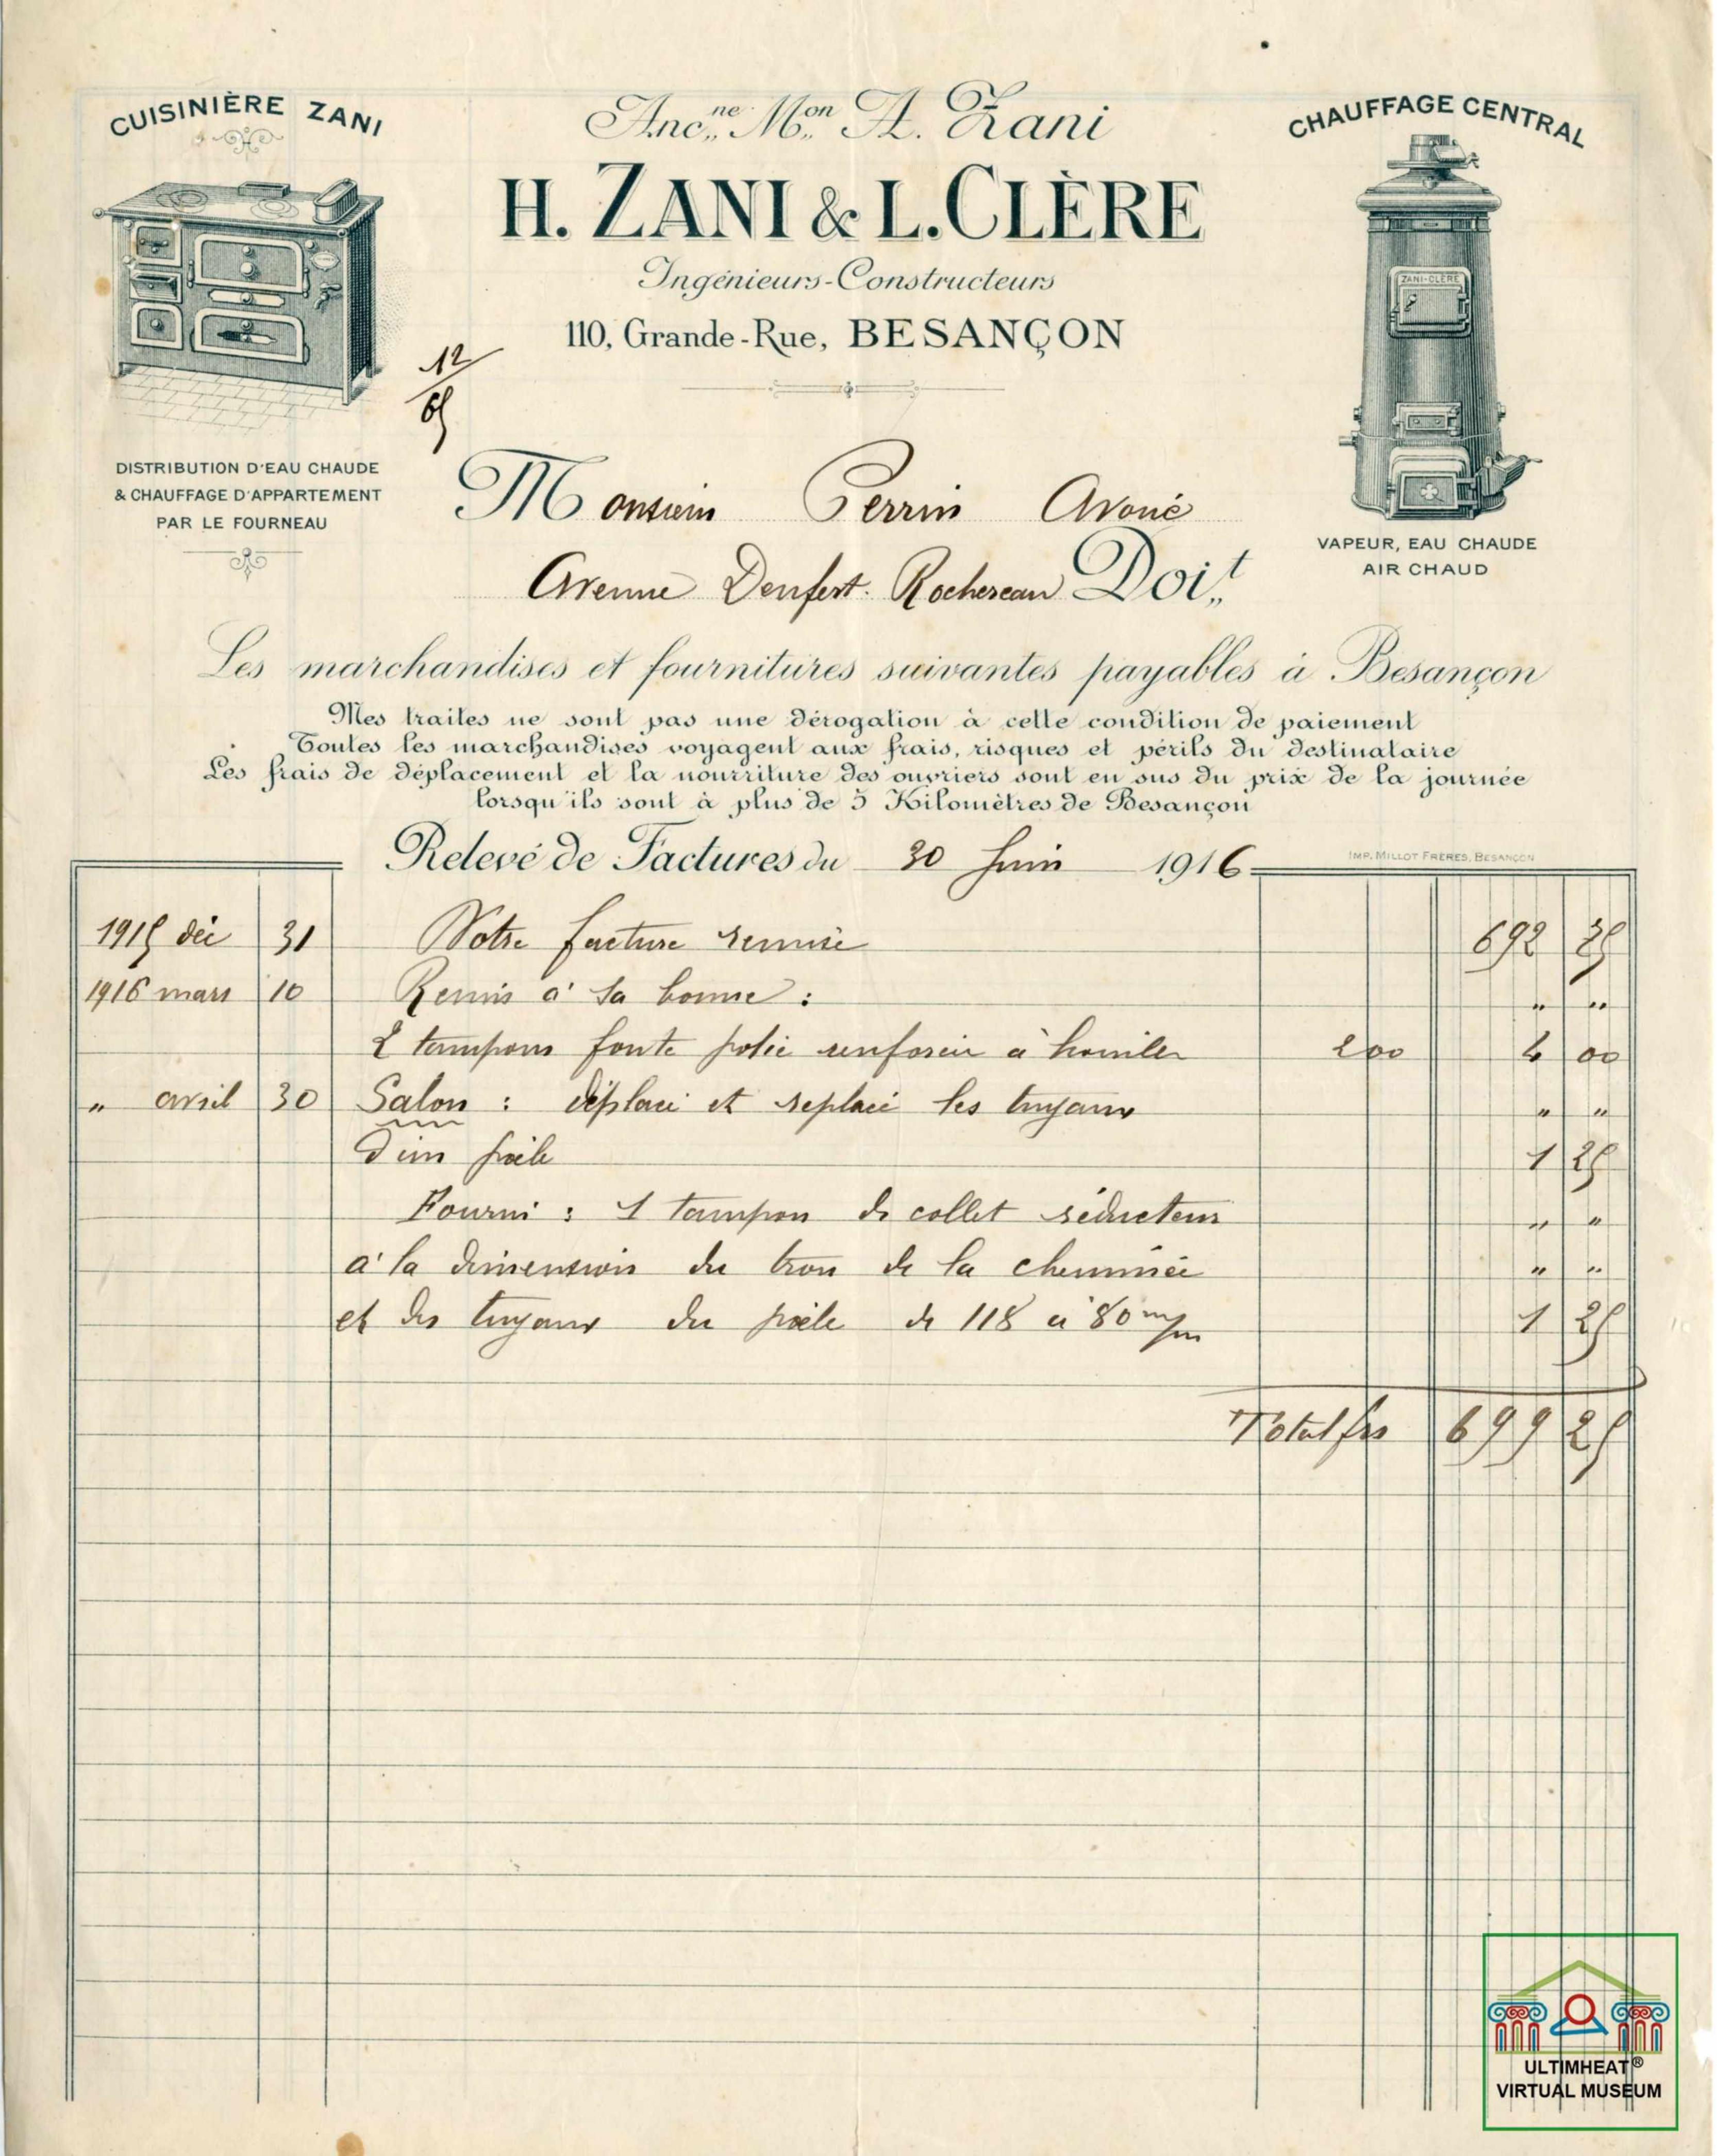 CUISINIÈRE ZANI
Anc.ne M.on A. Zani
CHAUFFAGE CENTRAL
H. ZANI & L. CLÈRE
Ingénieurs-Constructeurs
110, Grande-Rue, BESANÇON
ZANI-CLÈRE
12
65
DISTRIBUTION D'EAU CHAUDE
& CHAUFFAGE D'APPARTEMENT
PAR LE FOURNEAU
VAPEUR, EAU CHAUDE
AIR CHAUD
Monsieur Perrin Avoué
Avenue Denfert-Rochereau Doit
Les marchandises et fournitures suivantes payables à Besançon
Mes traites ne sont pas une dérogation à cette condition de paiement
Toutes les marchandises voyagent aux frais, risques et périls du destinataire
Les frais de déplacement et la nourriture des ouvriers sont en sus du prix de la journée
lorsqu'ils sont à plus de 5 Kilomètres de Besançon
Relevé de Factures du 30 Juin 1916
IMP. MILLOT FRÈRES, BESANÇON
1915 déc 31 Notre facture remise 692 25
1916 mars 10 Remis à sa bonne : " "
2 tampons fonte polie à 2 00 4 00
" avril 30 Salon : déplacé et replacé les tuyaux " "
d'un poêle 1 25
Fourni : 1 tampon de collet réducteur " "
à la dimension du trou de la cheminée " "
et des tuyaux du poêle de 118 à 80 m/m 1 25
Total frs 699 25
ULTIMHEAT®
VIRTUAL MUSEUM